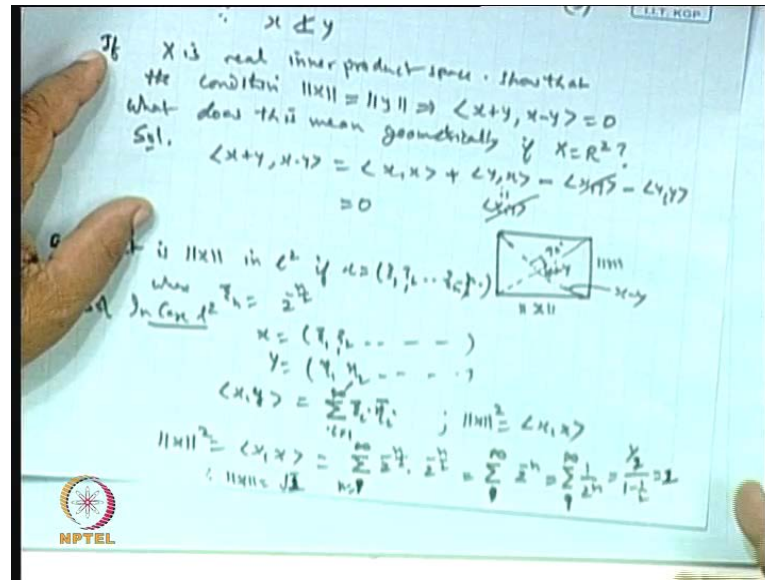 I.I.T. KGP
∴ x ⊥̸ y
If X is real inner product space. Show that
the condition ||x|| = ||y|| ⇒ <x+y, x-y> = 0
What does this mean geometrically if X = R²?
Sol.
<x+y, x-y> = <x,x> + <y,x> - <x,y> - <y,y>
<x,y>
= 0
90°
x+y
||y||
x-y
||x||
is ||x|| in l² if x = (ξ₁, ξ₂ ... ξₙ ...)
where ξₙ = 2^{-n/2}
In Case l²
x = (ξ₁, ξ₂ - - - - )
y = (η₁, η₂ - - - - )
<x,y> = ∑_{i=1}^∞ ξᵢ η̄ᵢ ; ||x||² = <x,x>
||x||² = <x,x> = ∑_{n=1}^∞ 2^{-n/2} . 2^{-n/2} = ∑_1^∞ 2^{-n} = ∑_1^∞ 1/2ⁿ = (1/2)/(1-1/2) = 1
∴ ||x|| = √1
NPTEL